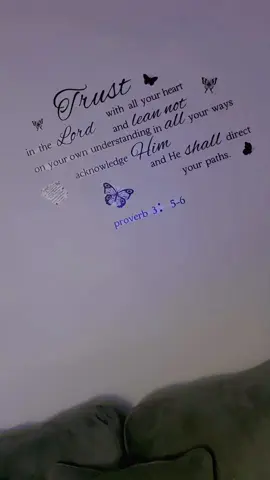 Trust with all your heart
in the Lord and lean not
on your own understanding in all your ways
acknowledge Him and He shall direct
your paths.
proverb 3: 5-6